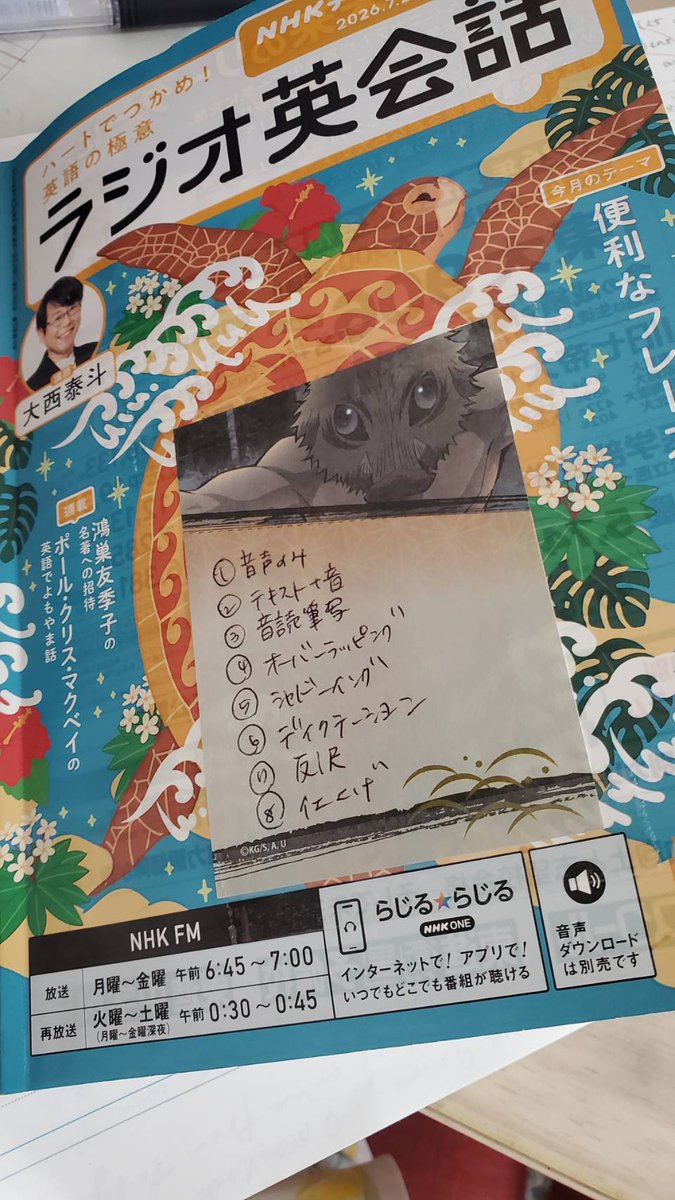 NHKテ
2026.7.2
ハートでつかめ!
英語の極意
ラジオ英会話
今月のテーマ
便利なフレーズ
講師
大西泰斗
連載
鴻巣友季子の
名著への招待
ポール・クリス・マクベイの
英語でよもやま話
①音声のみ
②テキスト+音
③音読筆写
④オーバーラッピング
⑤シャドーイング
⑥ディクテーション
⑦反訳
⑧仕上げ
©KG/S, A, U
NHK FM
放送 月曜~金曜 午前 6:45~7:00
再放送 火曜~土曜 午前 0:30~0:45
(月曜~金曜深夜)
らじる★らじる
NHK ONE
インターネットで! アプリで!
いつでもどこでも番組が聴ける
音声
ダウンロード
は別売です